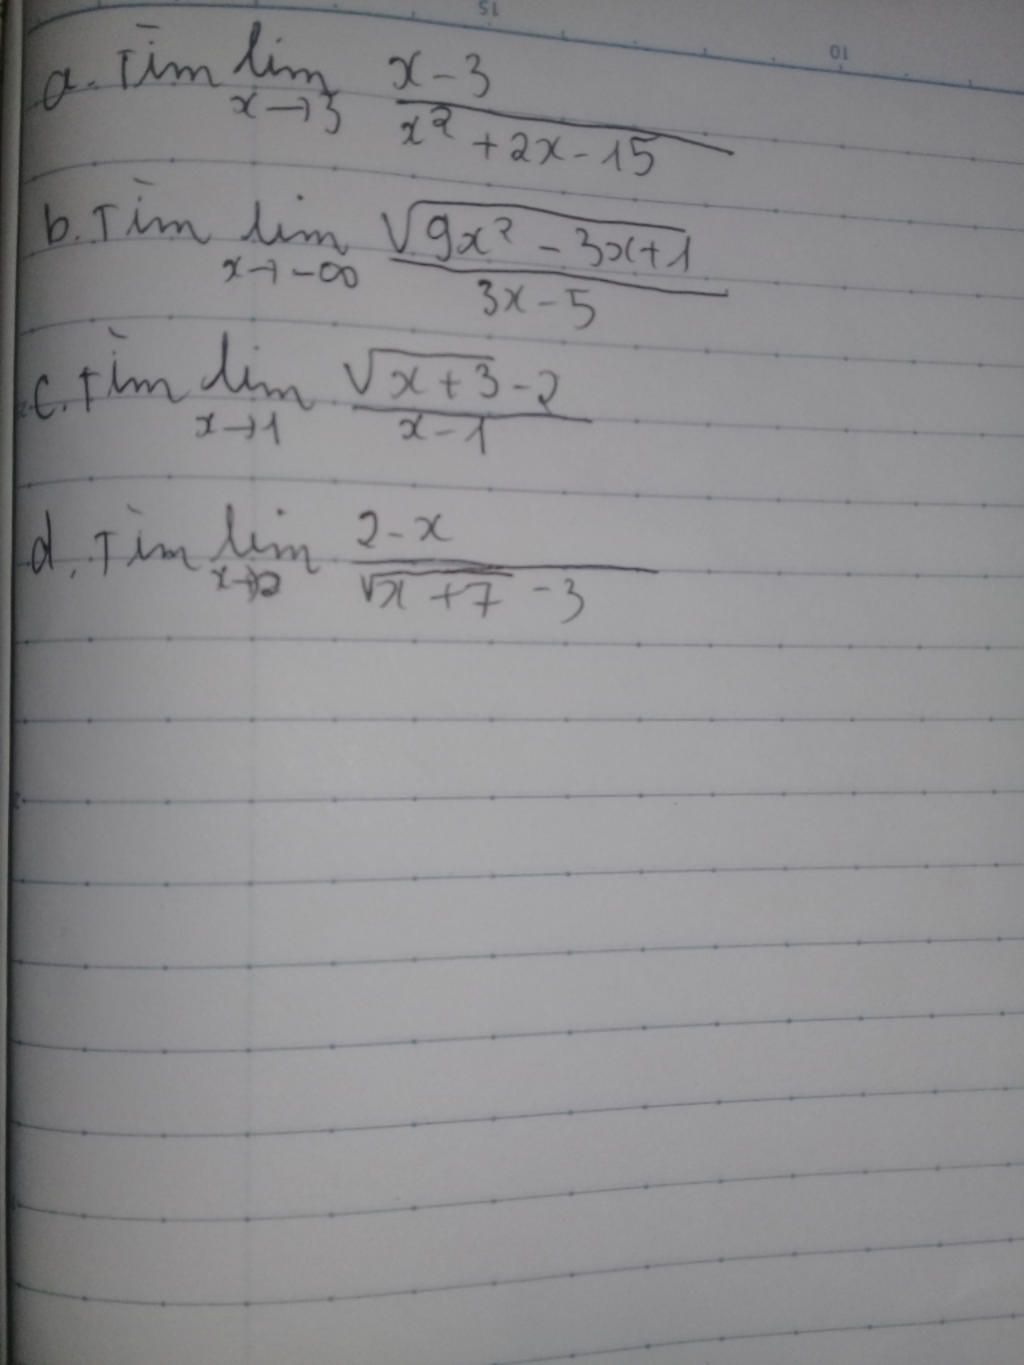 15
10
a. Tìm lim x→3 (x-3)/(x²+2x-15)
b. Tìm lim x→-∞ √(9x²-3x+1)/(3x-5)
c. Tìm lim x→1 (√(x+3)-2)/(x-1)
d. Tìm lim x→2 (2-x)/(√(x+7)-3)